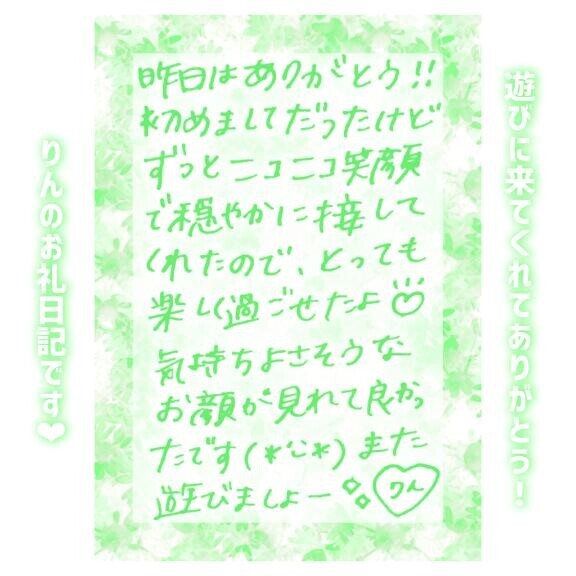 遊びに来てくれてありがとう!
昨日はありがとう!!
初めましてだったけど
ずっとニコニコ笑顔
で穏やかに接して
くれたので、とっても
楽しく過ごせたよ♡
気持ちよさそうな
お顔が見れて良かっ
たです(*ˊᵕˋ*)また
遊びましょー
りん
りんのお礼日記です❤